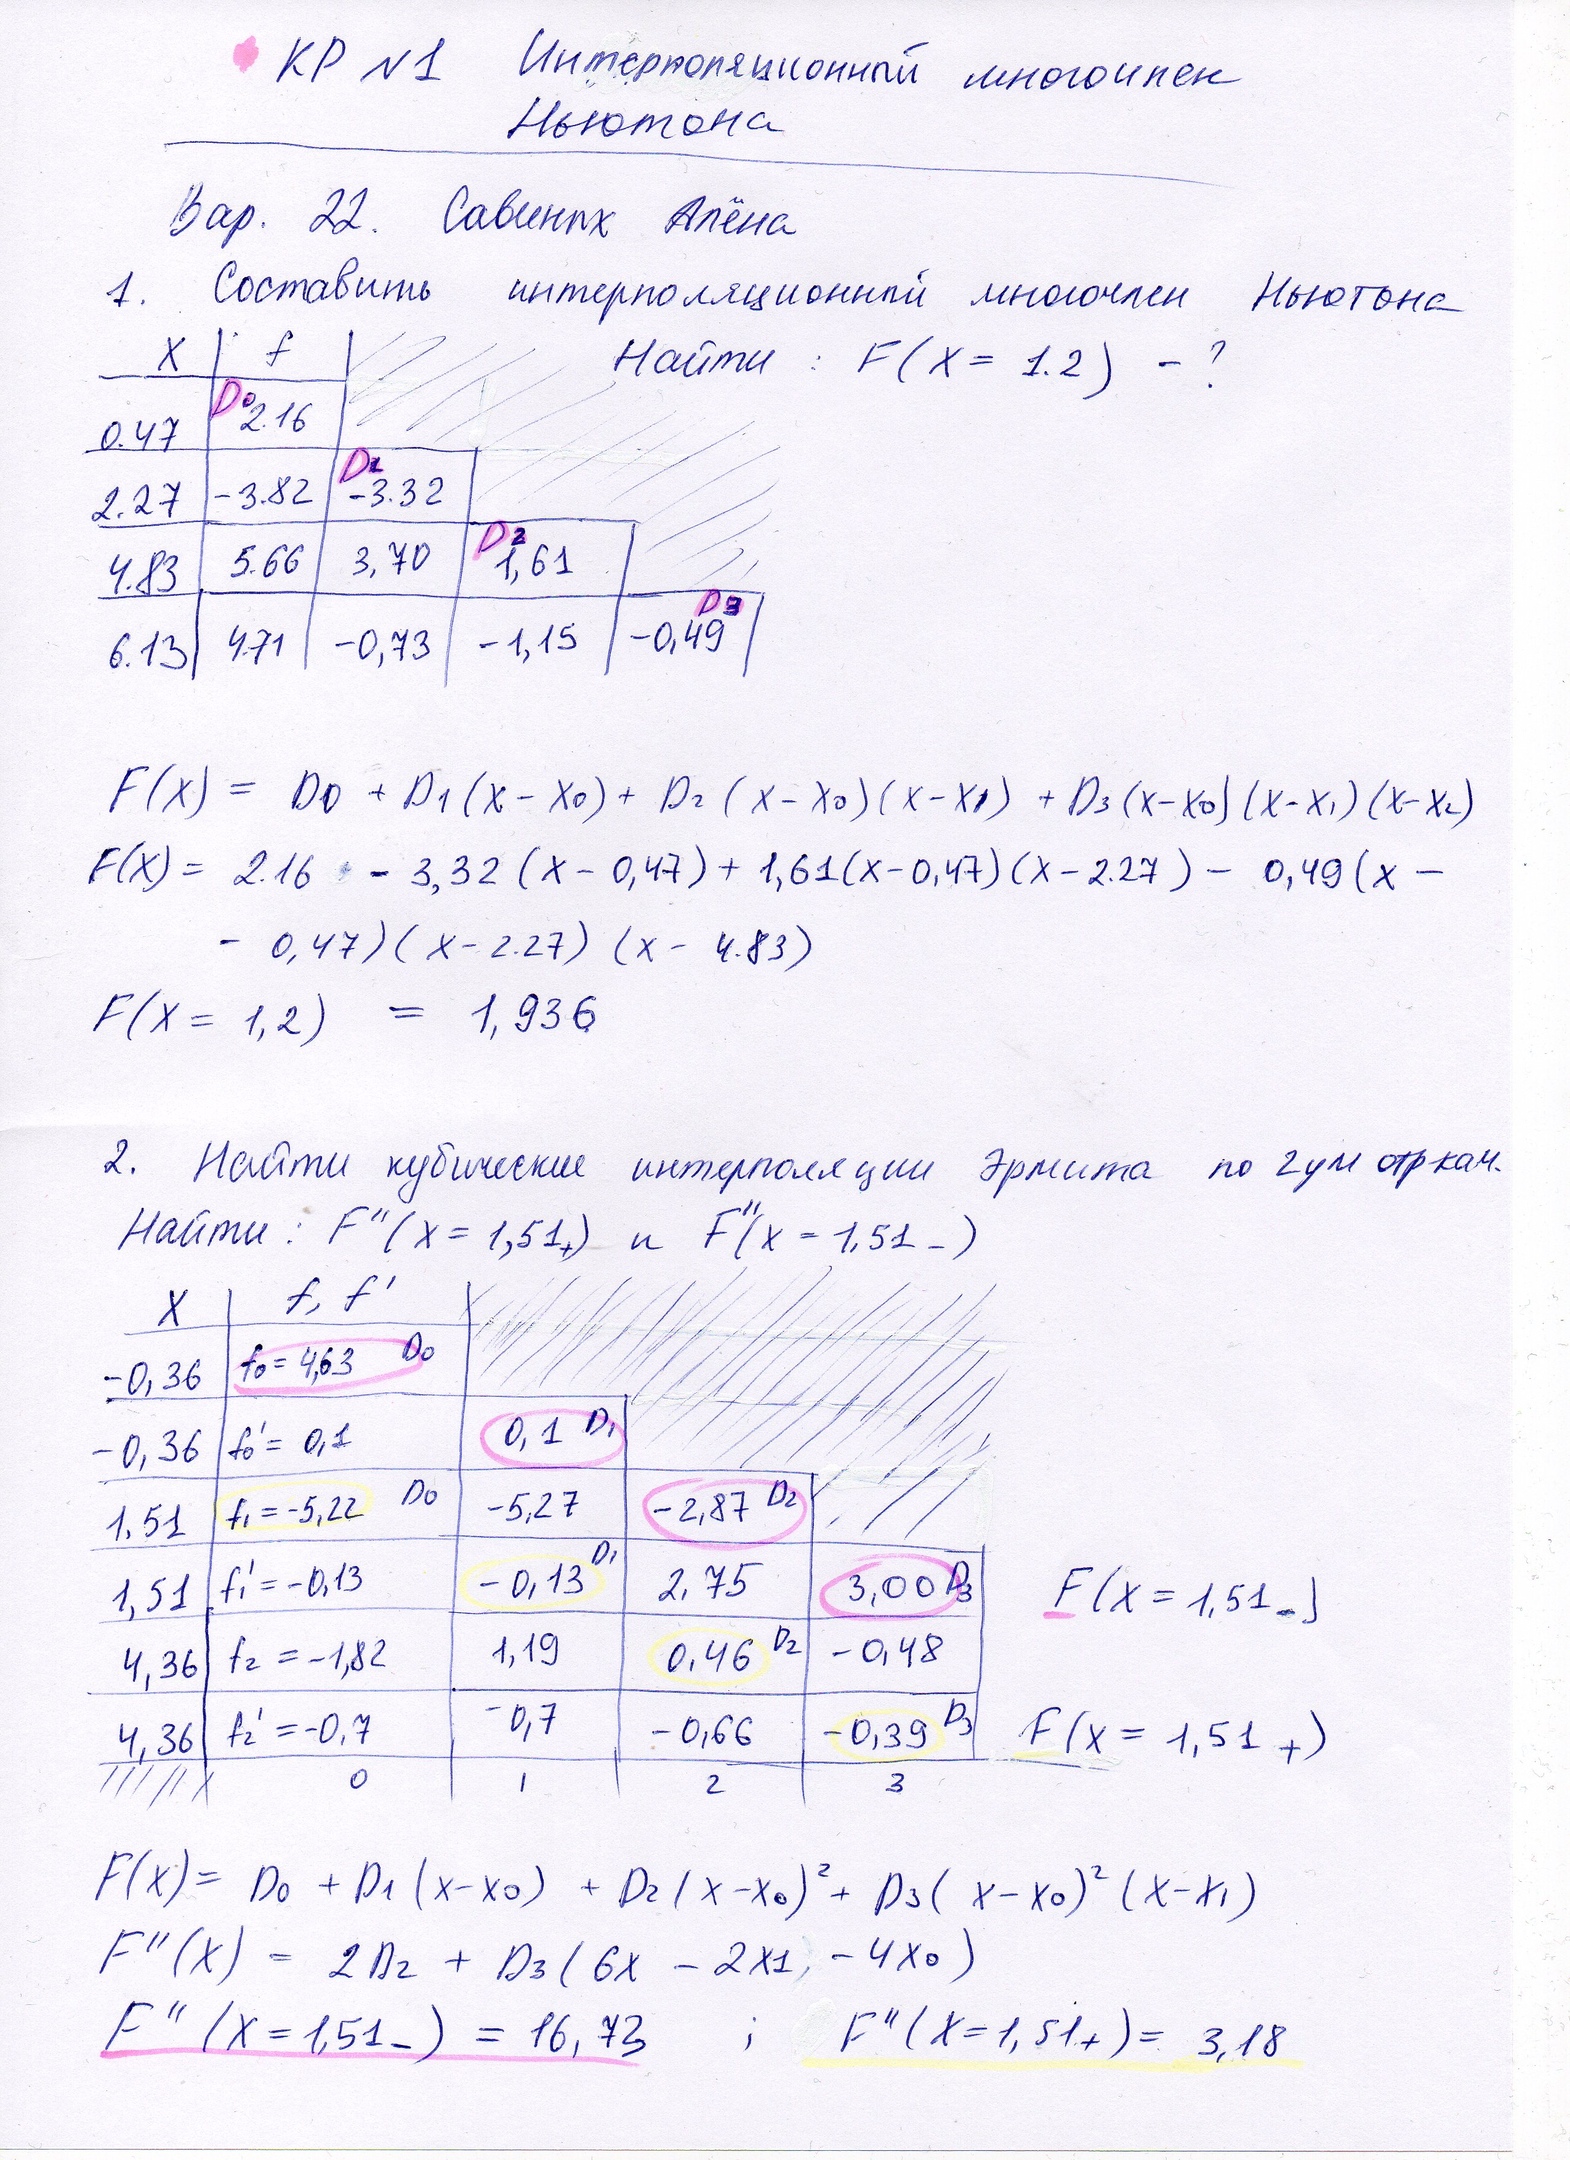 КР №1 Интерполяционный многочлен
Ньютона
Вар. 22. Савиных Алёна
1. Составить интерполяционный многочлен Ньютона
X f Найти : F(X = 1.2) - ?
0.47 D0 2.16
2.27 -3.82 D1 -3.32
4.83 5.66 3,70 D2 1,61
6.13 4.71 -0,73 -1,15 D3 -0,49
F(X) = D0 + D1(X-X0) + D2(X-X0)(X-X1) + D3(X-X0)(X-X1)(X-X2)
F(X) = 2.16 - 3,32(X-0,47) + 1,61(X-0,47)(X-2.27) - 0,49(X-
- 0,47)(X-2.27)(X-4.83)
F(X = 1,2) = 1,936
2. Найти кубические интерполяции Эрмита по 2ум
Найти: F''(X = 1,51+) и F''(X = 1,51-)
X f, f'
-0,36 f0 = 4,63 D0
-0,36 f0' = 0,1 0,1 D1
1,51 f1 = -5,22 D0 -5,27 -2,87 D2
1,51 f1' = -0,13 -0,13 D1 2,75 3,00 D3 F(X = 1,51-)
4,36 f2 = -1,82 1,19 0,46 D2 -0,48
4,36 f2' = -0,7 -0,7 -0,66 -0,39 D3 F(X = 1,51+)
0 1 2 3
F(X) = D0 + D1(X-X0) + D2(X-X0)² + D3(X-X0)²(X-X1)
F''(X) = 2D2 + D3(6X - 2X1 - 4X0)
F''(X=1,51-) = 16,73 ; F''(X=1,51+) = 3,18